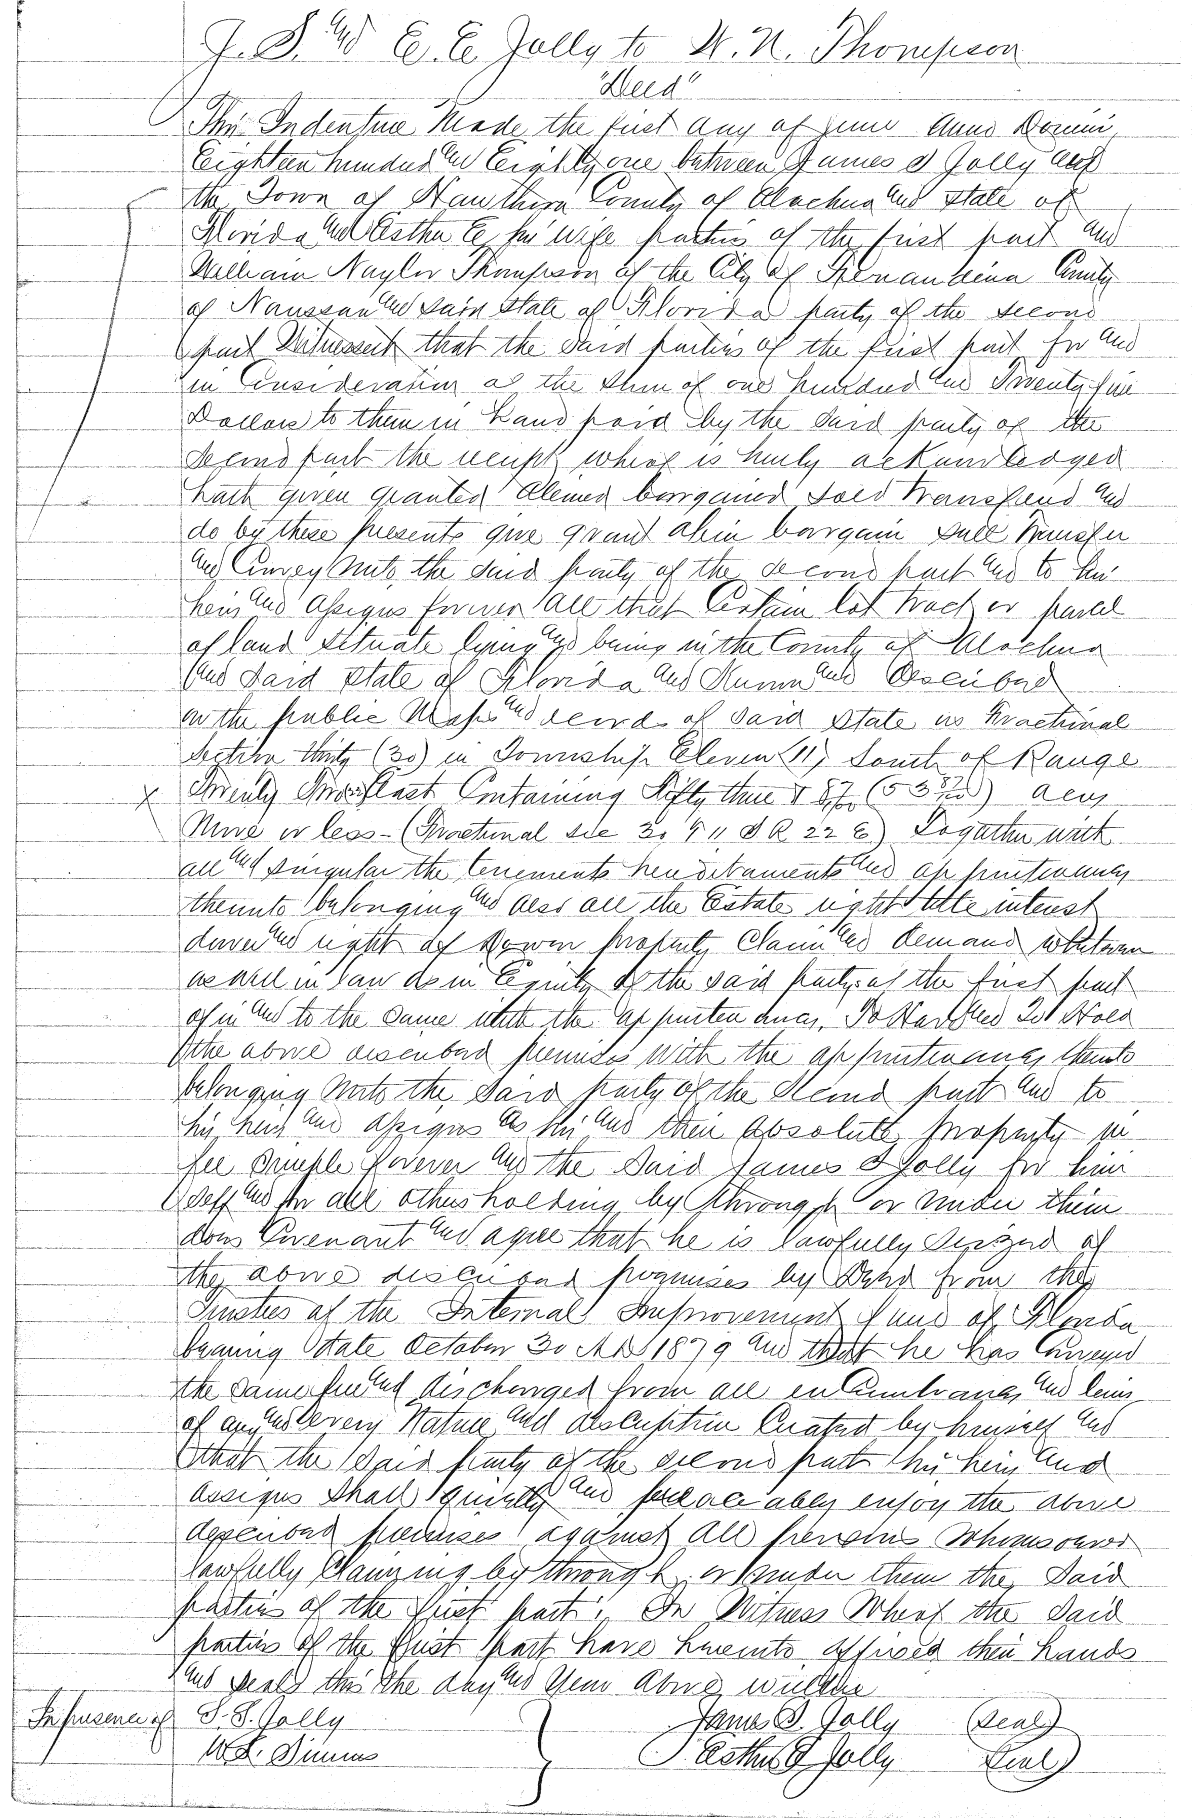 J. S. and E. E. Jolly to W. N. Thompson
"Deed"
This Indenture Made the first day of June Anno Domini
Eighteen hundred and Eighty one between James S Jolly of
the Town of Hawthorn County of Alachua and State of
Florida and Esther E his wife parties of the first part and
William Naylor Thompson of the City of Fernandina County
of Naussau and said State of Florida party of the second
part Witnesseth that the said parties of the first part for and
in Consideration of the Sum of one hundred and Twenty five
Dollars to them in hand paid by the said party of the
second part the receipt whereof is hereby acknowledged
hath given granted aliened bargained sold transferred and
do by these presents give grant alien bargain sell transfer
and Convey unto the said party of the second part and to his
heirs and assigns forever all that Certain lot tract or parcel
of land situate lying and being in the County of Alachua
and said State of Florida and Known and described
on the public Maps and records of said State as Fractional
Section thirty (30) in Township Eleven (11) South of Range
X Twenty Two East Containing Fifty three & 87/100 (53 87/100) acres
More or less - (Fractional sec 30 T 11 S R 22 E) Together with
all and singular the tenements hereditaments and appurtenances
thereunto belonging and also all the Estate right title interest
dower and right of Dower property Claim and demand whatsoever
as well in law as in Equity of the said party of the first part
of in and to the same with the appurtenances. To Have and To Hold
the above described premises with the appurtenances thereto
belonging unto the said party of the second part and to
his heirs and assigns as his and their absolute property in
fee simple forever and the said James S Jolly for him
self and for all others holding by through or under them
does Covenant and agree that he is lawfully seized of
the above described premises by Deed from the
Trustees of the Internal Improvement fund of Florida
bearing date October 30 AD 1879 and that he has Conveyed
the same free and discharged from all encumbrances and liens
of any and every Nature and description Created by himself and
that the said party of the second part his heirs and
assigns shall quietly and peaceably enjoy the above
described premises against all persons whomsoever
lawfully Claiming by through or under them the said
parties of the first part. In Witness Whereof the said
parties of the first part have hereunto affixed their hands
and seals this the day and Year above written
In presence of S. S. Jolly James S. Jolly (Seal)
W. L. Simms Esther E Jolly (Seal)